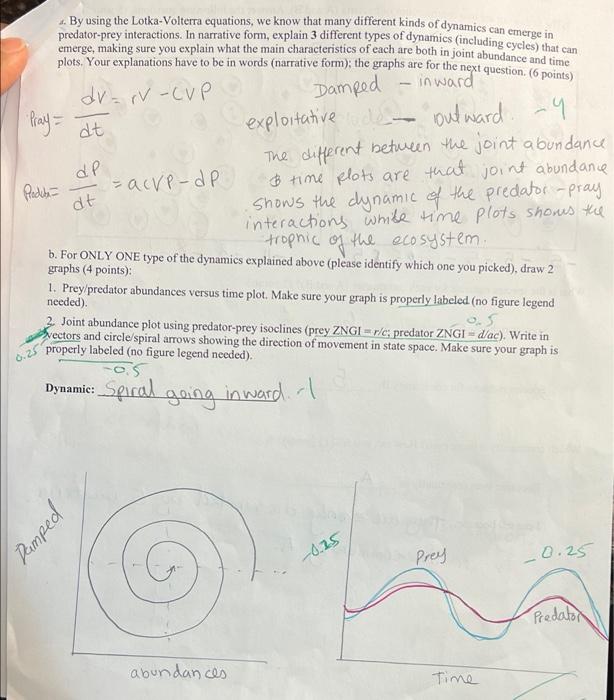 a. By using the Lotka-Volterra equations, we know that many different kinds of dynamics can emerge in
predator-prey interactions. In narrative form, explain 3 different types of dynamics (including cycles) that can
emerge, making sure you explain what the main characteristics of each are both in joint abundance and time
plots. Your explanations have to be in words (narrative form); the graphs are for the next question. (6 points)
Pray = dV/dt = rV - CVP
Damped - inward
exploitative — outward. -4
The different between the joint abundance
& time plots are that joint abundance
Shows the dynamic of the predator-pray
interactions while time plots shows the
trophic of the ecosystem.
dP/dt = acVP - dP
b. For ONLY ONE type of the dynamics explained above (please identify which one you picked), draw 2
graphs (4 points):
1. Prey/predator abundances versus time plot. Make sure your graph is properly labeled (no figure legend
needed).
-0.5
2. Joint abundance plot using predator-prey isoclines (prey ZNGI = r/c; predator ZNGI = d/ac). Write in
vectors and circle/spiral arrows showing the direction of movement in state space. Make sure your graph is
0.25 properly labeled (no figure legend needed).
-0.5
Dynamic: Spiral going inward. -1
Damped
abundances
-0.25
Prey
-0.25
Predator
Time